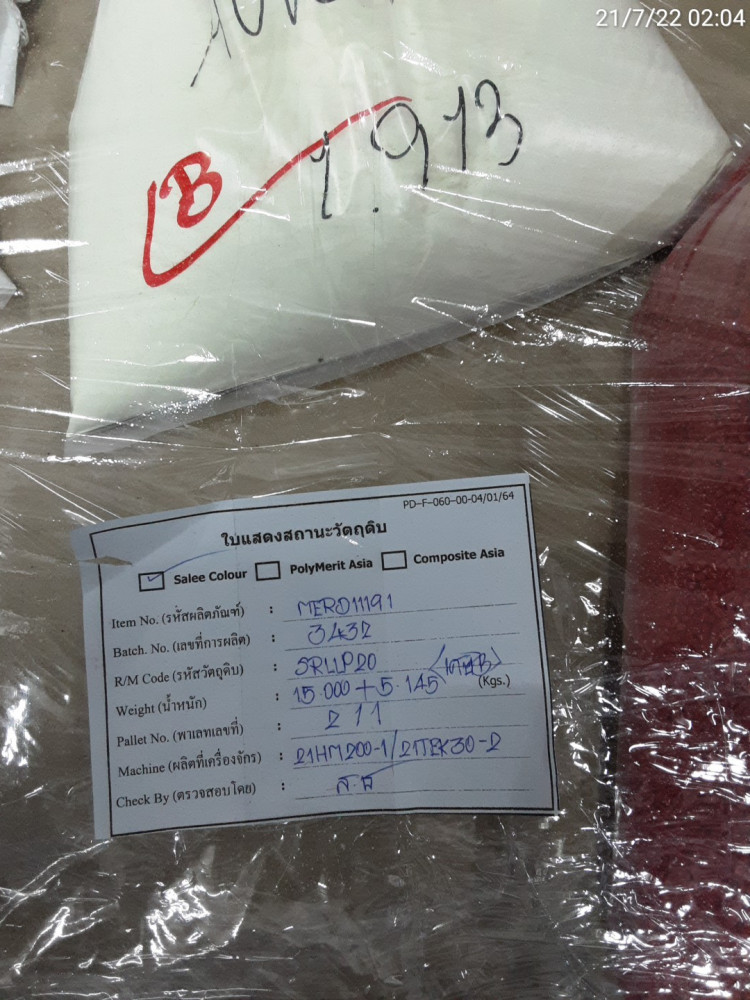 21/7/22 02:04
B 1.913
PD-F-060-00-04/01/64
ใบแสดงสถานะวัตถุดิบ
Salee Colour PolyMerit Asia Composite Asia
Item No. (รหัสผลิตภัณฑ์) : MERO11191
Batch. No. (เลขที่การผลิต) : 3432
R/M Code (รหัสวัตถุดิบ) : SRLLP20
Weight (น้ำหนัก) : 15.000 + 5.145 (Kgs.)
Pallet No. (พาเลทเลขที่) : 2 / 1
Machine (ผลิตที่เครื่องจักร) : 21HM200-1/21TEK30-2
Check By (ตรวจสอบโดย) :